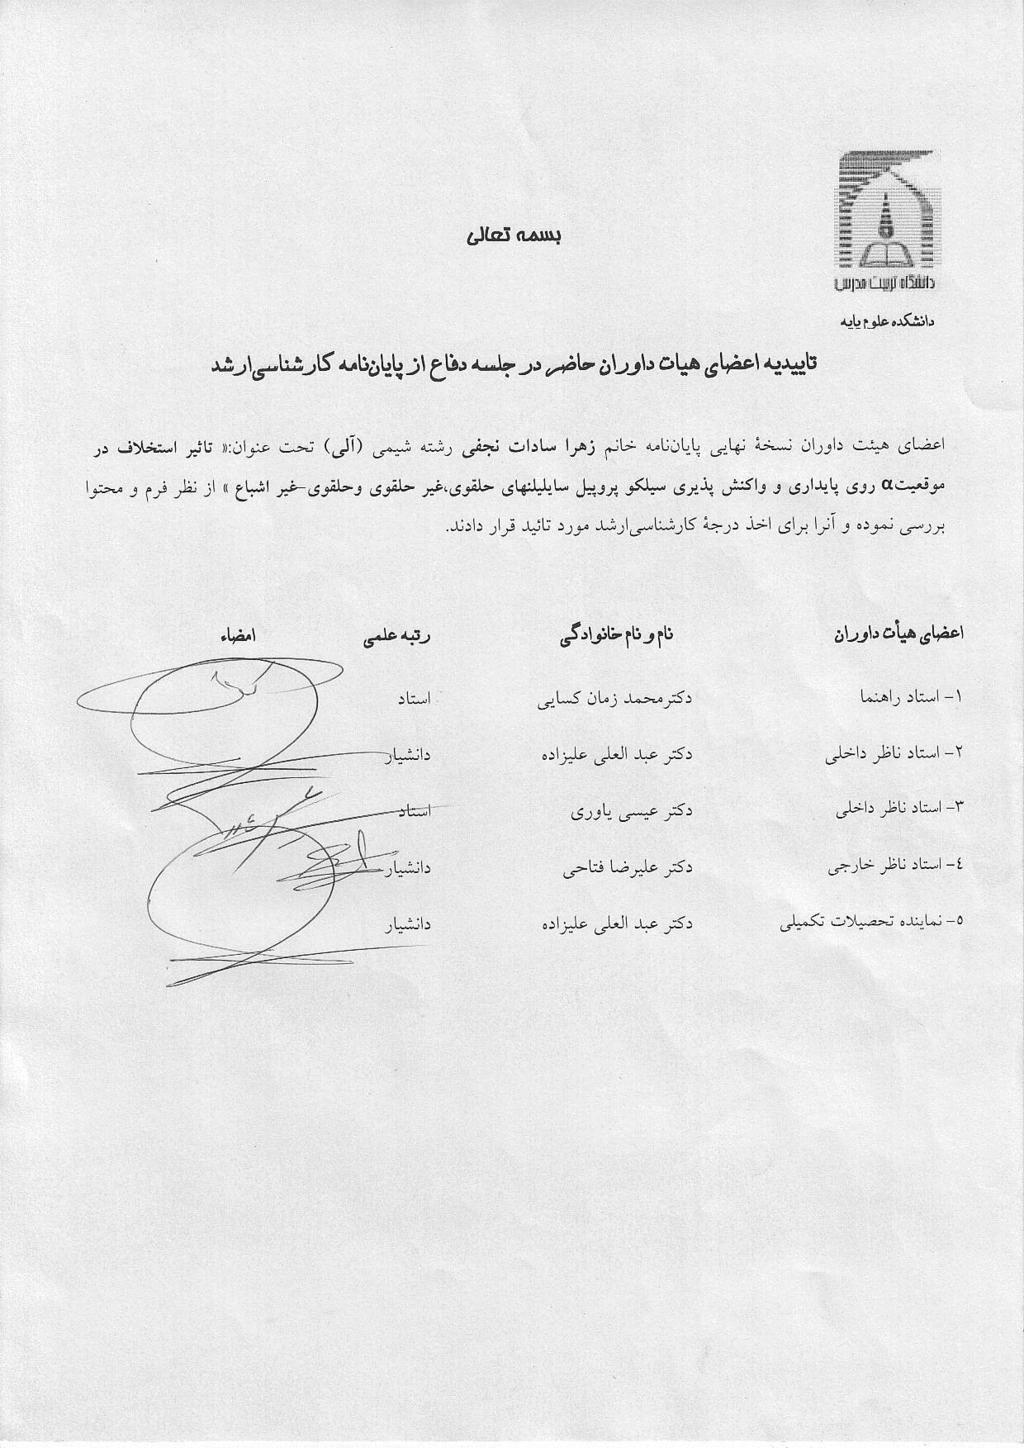 دانشگاه تربیت مدرس
دانشکده علوم پایه
بسمه تعالی
تاییدیه اعضای هیات داوران حاضر در جلسه دفاع از پایان‌نامه کارشناسی‌ارشد
اعضای هیئت داوران نسخهٔ نهایی پایان‌نامه خانم زهرا سادات نجفی رشته شیمی (آلی) تحت عنوان:« تاثیر استخلاف در
موقعیت α روی پایداری و واکنش پذیری سیلکو پروپیل سایلیلنهای حلقوی،غیر حلقوی وحلقوی-غیر اشباع » از نظر فرم و محتوا
بررسی نموده و آنرا برای اخذ درجهٔ کارشناسی‌ارشد مورد تائید قرار دادند.
اعضای هیأت داوران نام و نام خانوادگی رتبه علمی امضاء
۱- استاد راهنما دکترمحمد زمان کسایی استاد
۲- استاد ناظر داخلی دکتر عبد العلی علیزاده دانشیار
۳- استاد ناظر داخلی دکتر عیسی یاوری استاد
۴- استاد ناظر خارجی دکتر علیرضا فتاحی دانشیار
۵- نماینده تحصیلات تکمیلی دکتر عبد العلی علیزاده دانشیار